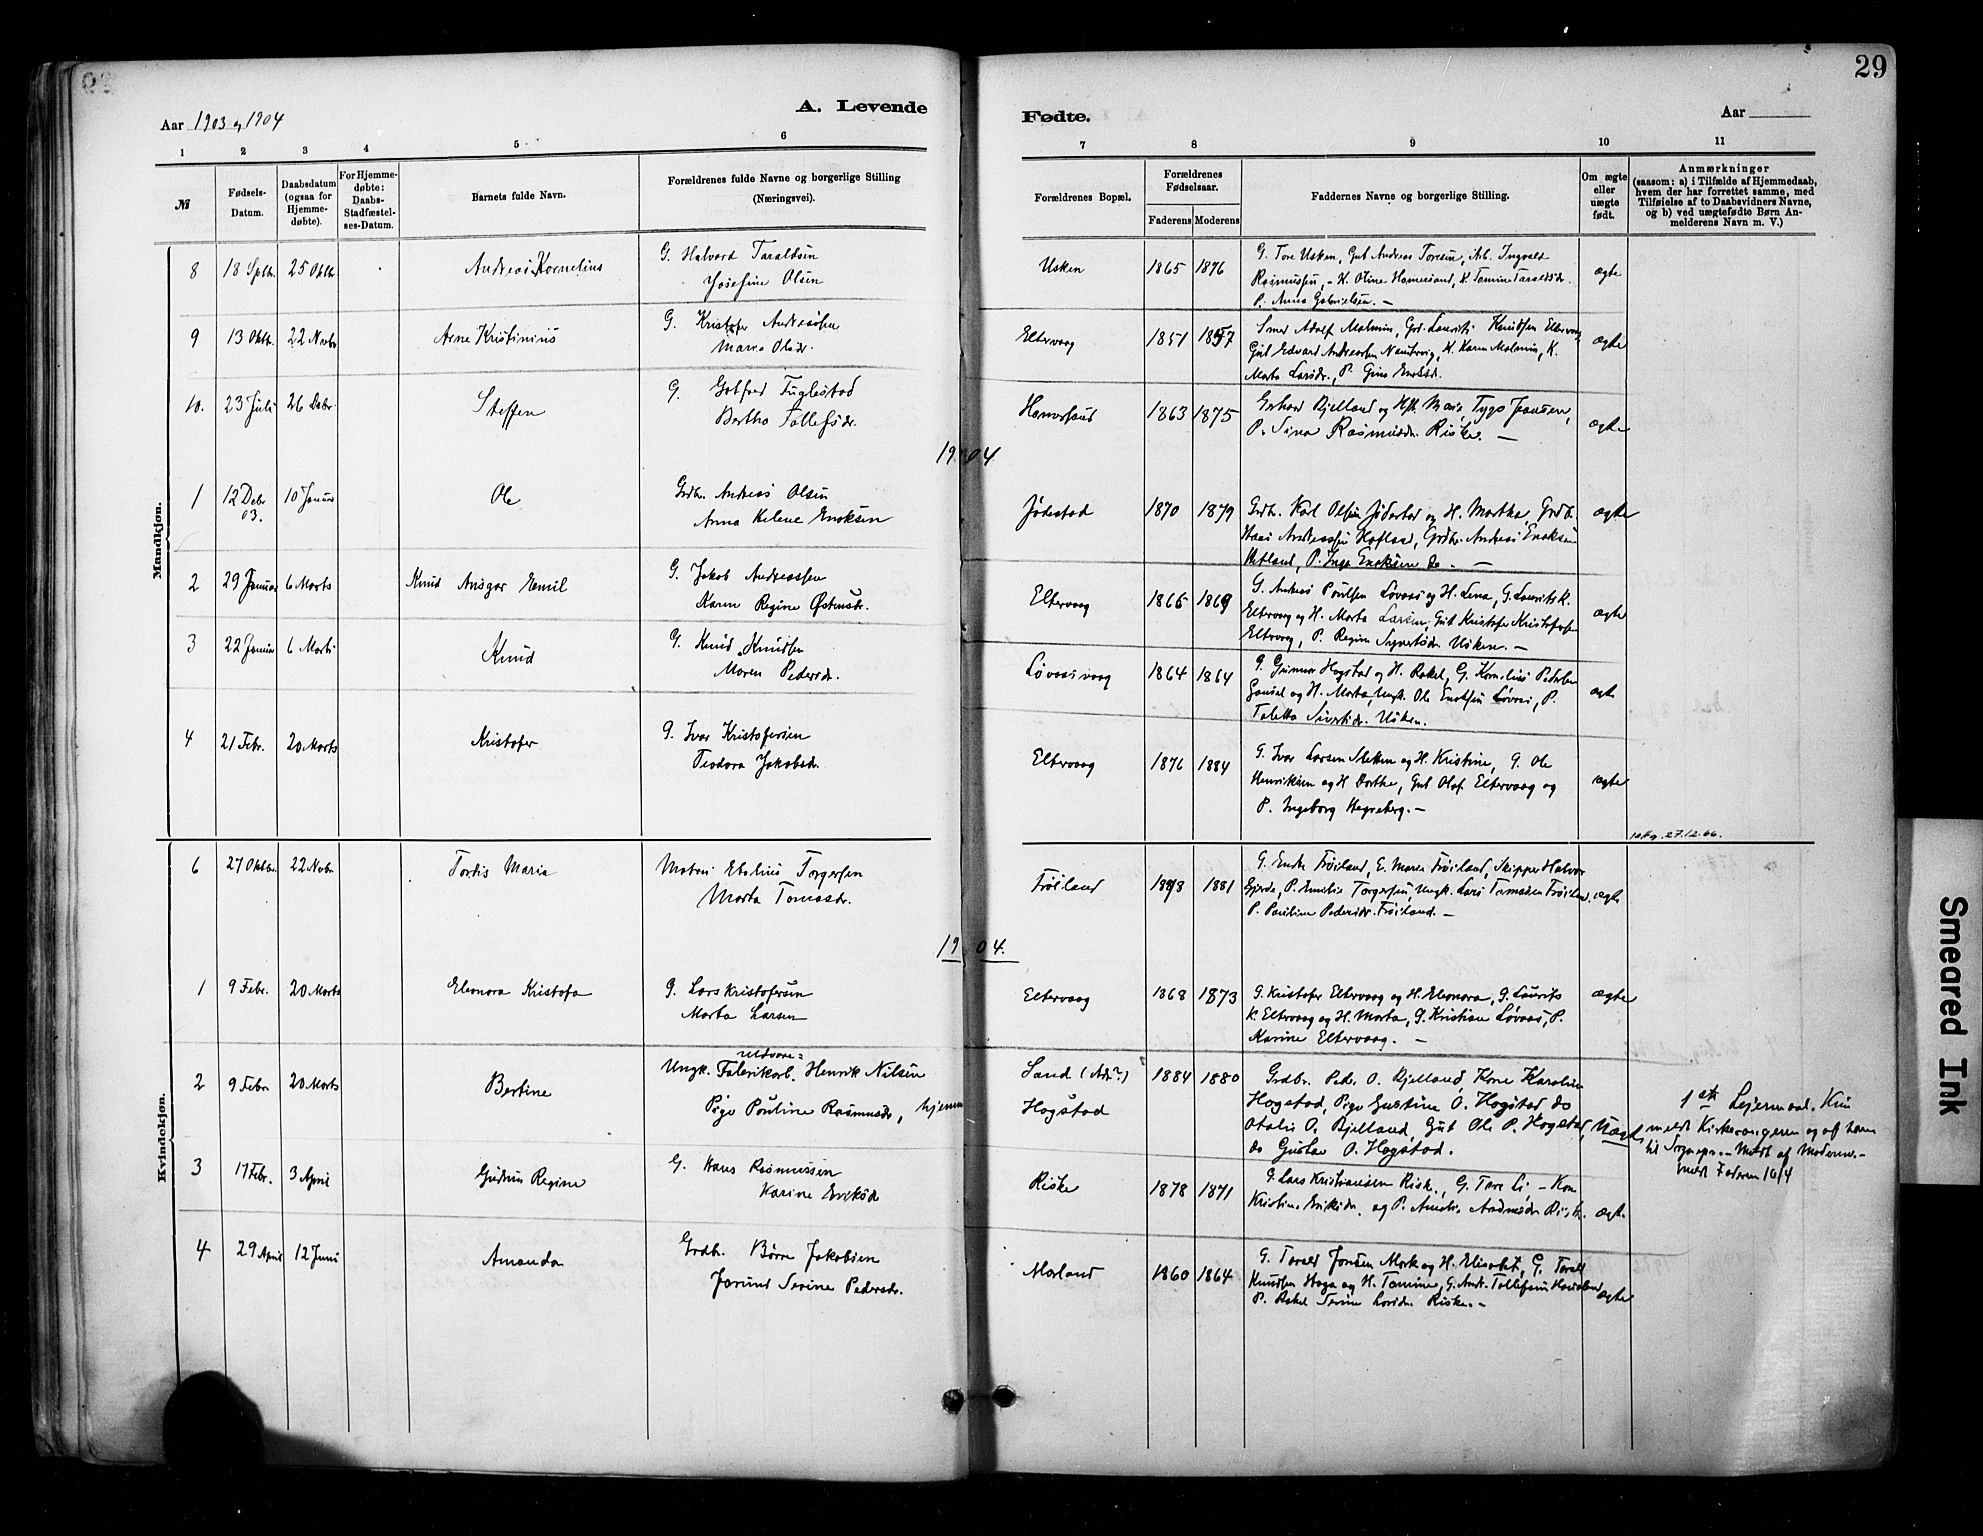 29
Aar 1903 og 1904
A. Levende
Fødte.
Aar
1 2 3 4 5 6 7 8 9 10 11
№
Fødsels-
Datum.
Daabsdatum
(ogsaa for
Hjemme-
døbte).
For Hjemme-
døbte:
Daabs-
Stadfæstel-
ses-Datum.
Barnets fulde Navn.
Forældrenes fulde Navne og borgerlige Stilling
(Næringsvei).
Forældrenes Bopæl.
Forældrenes
Fødselsaar.
Faderens Moderens
Faddernes Navne og borgerlige Stilling.
Om ægte
eller
uægte
født.
Anmærkninger
(saasom: a) i Tilfælde af Hjemmedaab,
hvem der har forrettet samme, med
Tilføielse af to Daabsvidners Navne,
og b) ved uægtefødte Børn An-
melderens Navn m. V.)
Mandkjøn.
8 18 Septbr 25 Oktbr Andreas Kornelius
G. Halvard Taraldsen
Josefine Olsen
Usken 1865 1876
G. Tore Usken, Gut Andreas Toresen, Arb. Ingvald
Rasmussen, - K. Oline Hamersand, K. Tomine Taraldsdr.
P. Anna Gabrielsen. -
ægte
9 13 Oktbr. 22 Novbr Arne Kristinius
G. Kristofer Andreassen
Maria Olsdr.
Eltervaag 1851 1857
Smed Adolf Malmin, Grd. Laurits Knudsen Eltervaag,
Gut Edvard Andreassen, K. Karen Malmin, K.
Marta Larsdr., P. Gina
ægte
10. 23 Juli 26 Debr Steffen
G. Gotfred Fuglestad
Bertha Tollefsdr.
Hamersand 1863 1875
Gerhard Bjelland og Hst. Marie, Tygo Jonsen,
P. Sina Rasmusdr. Riske. -
ægte
1904
1 12 Debr 03. 10 Januar Ole
Grdbr. Andreas Olsen
Anna Helene Enoksen
Jødestad 1870 1879
Grdbr. Karl Olsen Jødestad og H. Martha, Grdb.
Hans Andreassen Hofland, Grdbr. Andreas Enoksen
Hetland, P. Inga Enoksen do - -
ægte
2 29 Januar 6 Marts Knud Ansgar Emil
G. Jakob Andreassen
Karen Regine Østensdr.
Eltervaag 1865 1869
G. Andreas Poulsen Løvaas og H. Lina, G. Laurits K.
Eltervaag og H. Marta Larsen, Gut Kristofer Kristofersen
Eltervaag, P. Regine Sivertsdr. Usken. -
ægte
3 22 Januar 6 Marts Knud
G. Knud Knudsen
Maren Pedersdr.
Løvaasvaag 1864 1864
G. Gunnar Hogstad og H. Rakel, G. Kornelius Pedersen
Gausel og H. Marta, Ungk. Ole Enoksen Løvaas, P.
Taletta Sivertsdr. Usken.
ægte
4 21 Febr. 20 Marts Kristofer
G. Ivar Kristofersen
Teodora Jakobsdr.
Eltervaag 1876 1884
G. Ivar Larsen Sletten og H. Kristine, G. Ole
Henriksen og H Dorthe, Gut Olaf Eltervaag og
P. Ingeborg Hegreberg. -
ægte
27.12.66.
Kvindekjøn.
6 27 Oktbr. 22 Novbr Tordis Maria
Matros Etelius Torgersen
Marta Tomasdr.
Frøiland 1878 1881
G. Endre Frøiland, E. Marie Frøiland, Skipper Halvor
Gjerde, P. Emelie Torgersen, Ungk. Lars Tomasen Frøiland.
P. Pauline Pedersdr. Frøiland. -
ægte
1904.
1 9 Febr. 20 Marts Eleonora Kristofa
G. Lars Kristofersen
Marta Larsen
Eltervaag 1868 1873
G. Kristofer Eltervaag og H. Eleonora, G. Laurits
K. Eltervaag og H. Marta, G. Kristian Løvaas, P.
Karine Eltervaag. -
ægte
2 9 Febr 20 Marts Bertine
Ungk. Fabrikarb. Henrik Nilsen
Pige Pouline Rasmusdr, hjemme
Sand (Adr?)
Hogstad
1884 1880
Grdbr. Peder O. Bjelland, Kone Karoline
Hogstad, Pige Gustine O. Hogstad do
Otalie O. Bjelland, Gut Ole P. Hogstad,
do Gustav O. Hogstad.
Uægte
1ste Lejermaal. Kun
meldt Kirkesangeren og af ham
til Sognepr. - Meldt af Moderen. -
meldt Faderen 16/4
3 17 Febr. 3 April Gudrun Regine
G. Hans Rasmussen
Karine Eriksdr
Riske 1878 1871
G. Lars Kristiansen Riske, G. Tore Li - Kone
Kristine Eriksdr. og P. Amalie Andreasdr Riske.
ægte
4 29 April 12 Juni Amanda
Grdbr. Børre Jakobsen
Jorund Serine Pedersdr.
Morland 1860 1864
G. Tarald Jonsen Mork og H. Elisabet, G. Tarald
Knudsen Haga og H. Tomine, G. Andr. Tollefsen
P. Rakel Serine Larsdr. Riske. -
ægte
Smeared Ink